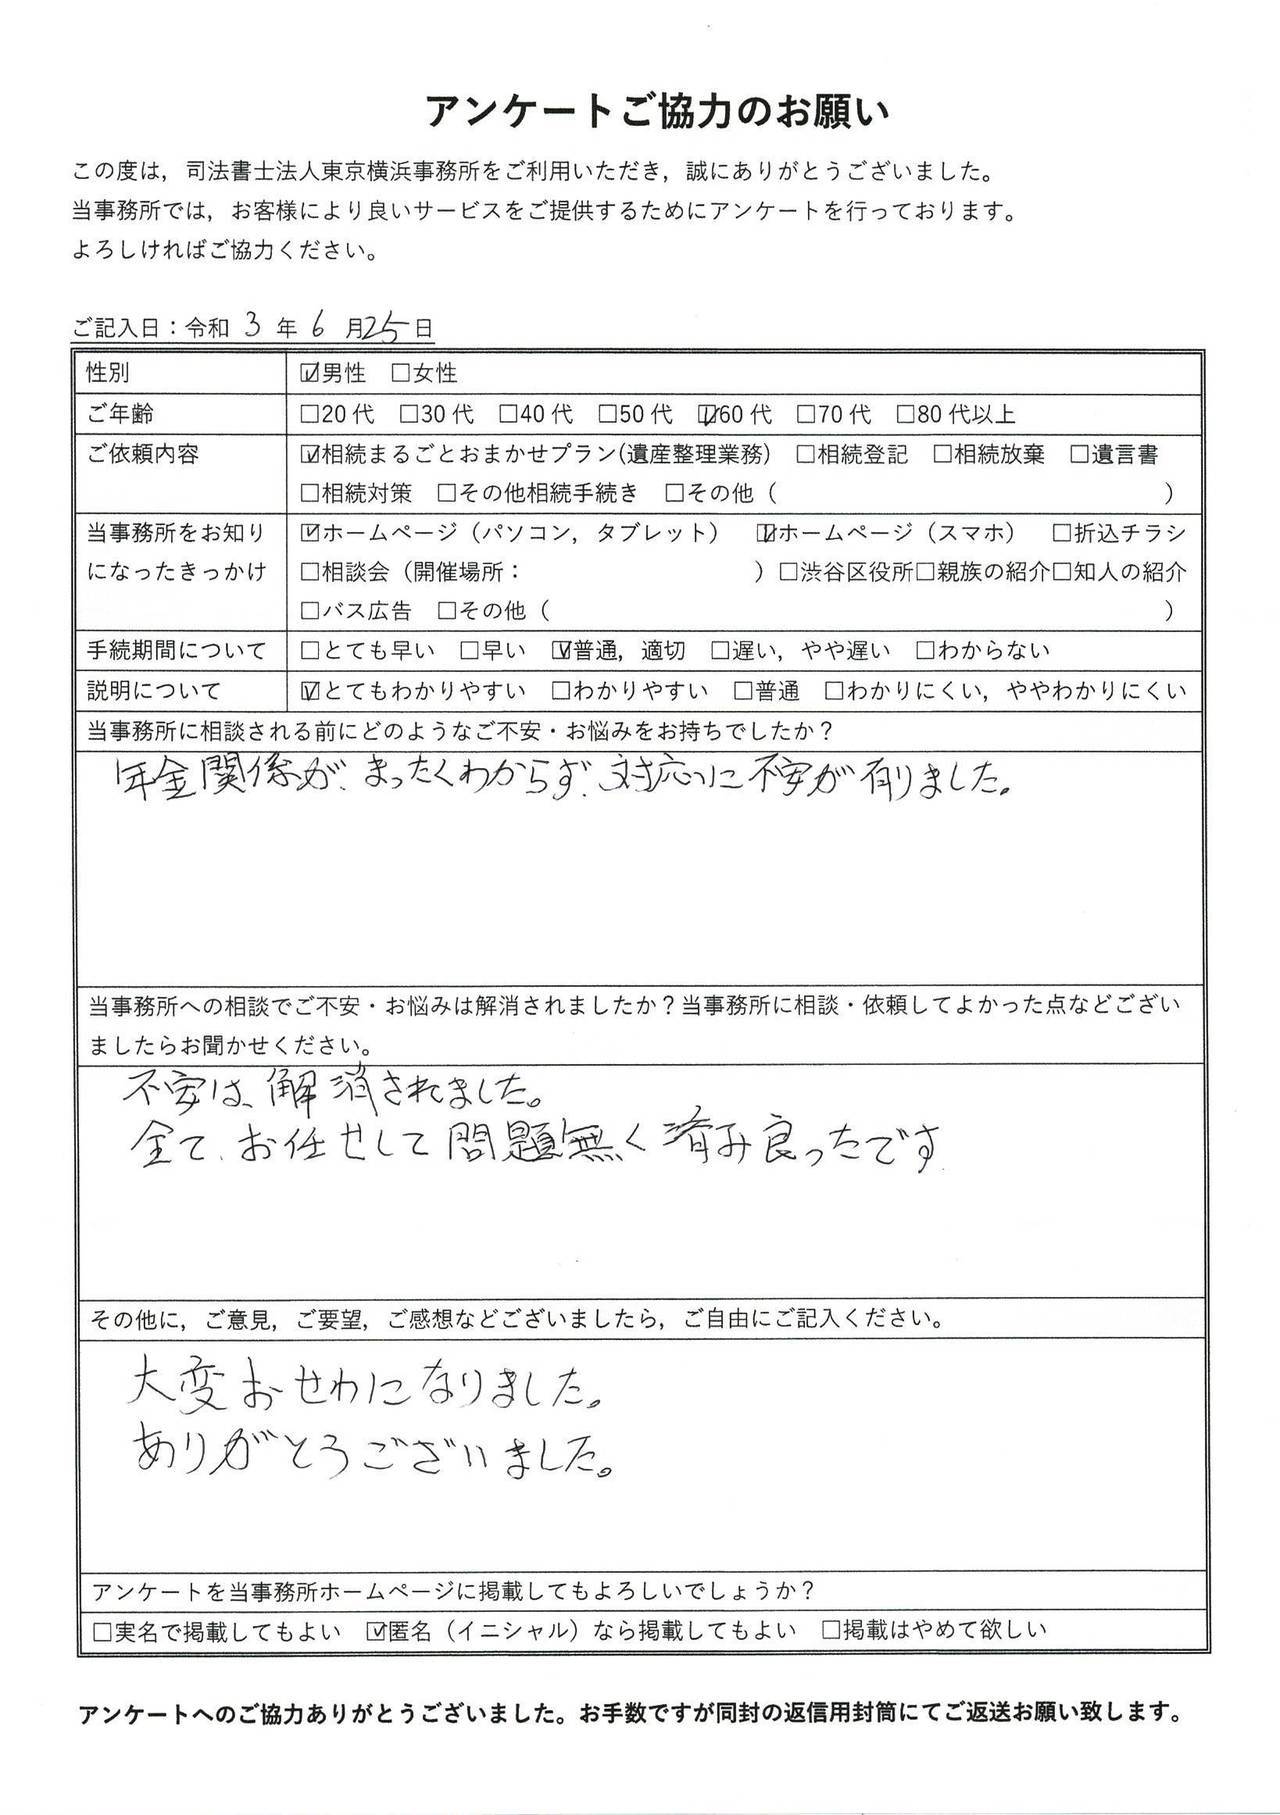 アンケートご協力のお願い
この度は，司法書士法人東京横浜事務所をご利用いただき，誠にありがとうございました。
当事務所では，お客様により良いサービスをご提供するためにアンケートを行っております。
よろしければご協力ください。
ご記入日：令和 3 年 6 月25日
性別 ☑男性 □女性
ご年齢 □20代 □30代 □40代 □50代 ☑60代 □70代 □80代以上
ご依頼内容 ☑相続まるごとおまかせプラン(遺産整理業務) □相続登記 □相続放棄 □遺言書
□相続対策 □その他相続手続き □その他（ ）
当事務所をお知り ☑ホームページ（パソコン，タブレット） ☑ホームページ（スマホ） □折込チラシ
になったきっかけ □相談会（開催場所： ）□渋谷区役所□親族の紹介□知人の紹介
□バス広告 □その他（ ）
手続期間について □とても早い □早い ☑普通，適切 □遅い，やや遅い □わからない
説明について ☑とてもわかりやすい □わかりやすい □普通 □わかりにくい，ややわかりにくい
当事務所に相談される前にどのようなご不安・お悩みをお持ちでしたか？
年金関係が、まったくわからず、対応に不安が有りました。
当事務所への相談でご不安・お悩みは解消されましたか？当事務所に相談・依頼してよかった点などござい
ましたらお聞かせください。
不安は、解消されました。
全て、お任せして問題無く済み良ったです
その他に，ご意見，ご要望，ご感想などございましたら，ご自由にご記入ください。
大変おせわになりました。
ありがとうございました。
アンケートを当事務所ホームページに掲載してもよろしいでしょうか？
□実名で掲載してもよい ☑匿名（イニシャル）なら掲載してもよい □掲載はやめて欲しい
アンケートへのご協力ありがとうございました。お手数ですが同封の返信用封筒にてご返送お願い致します。